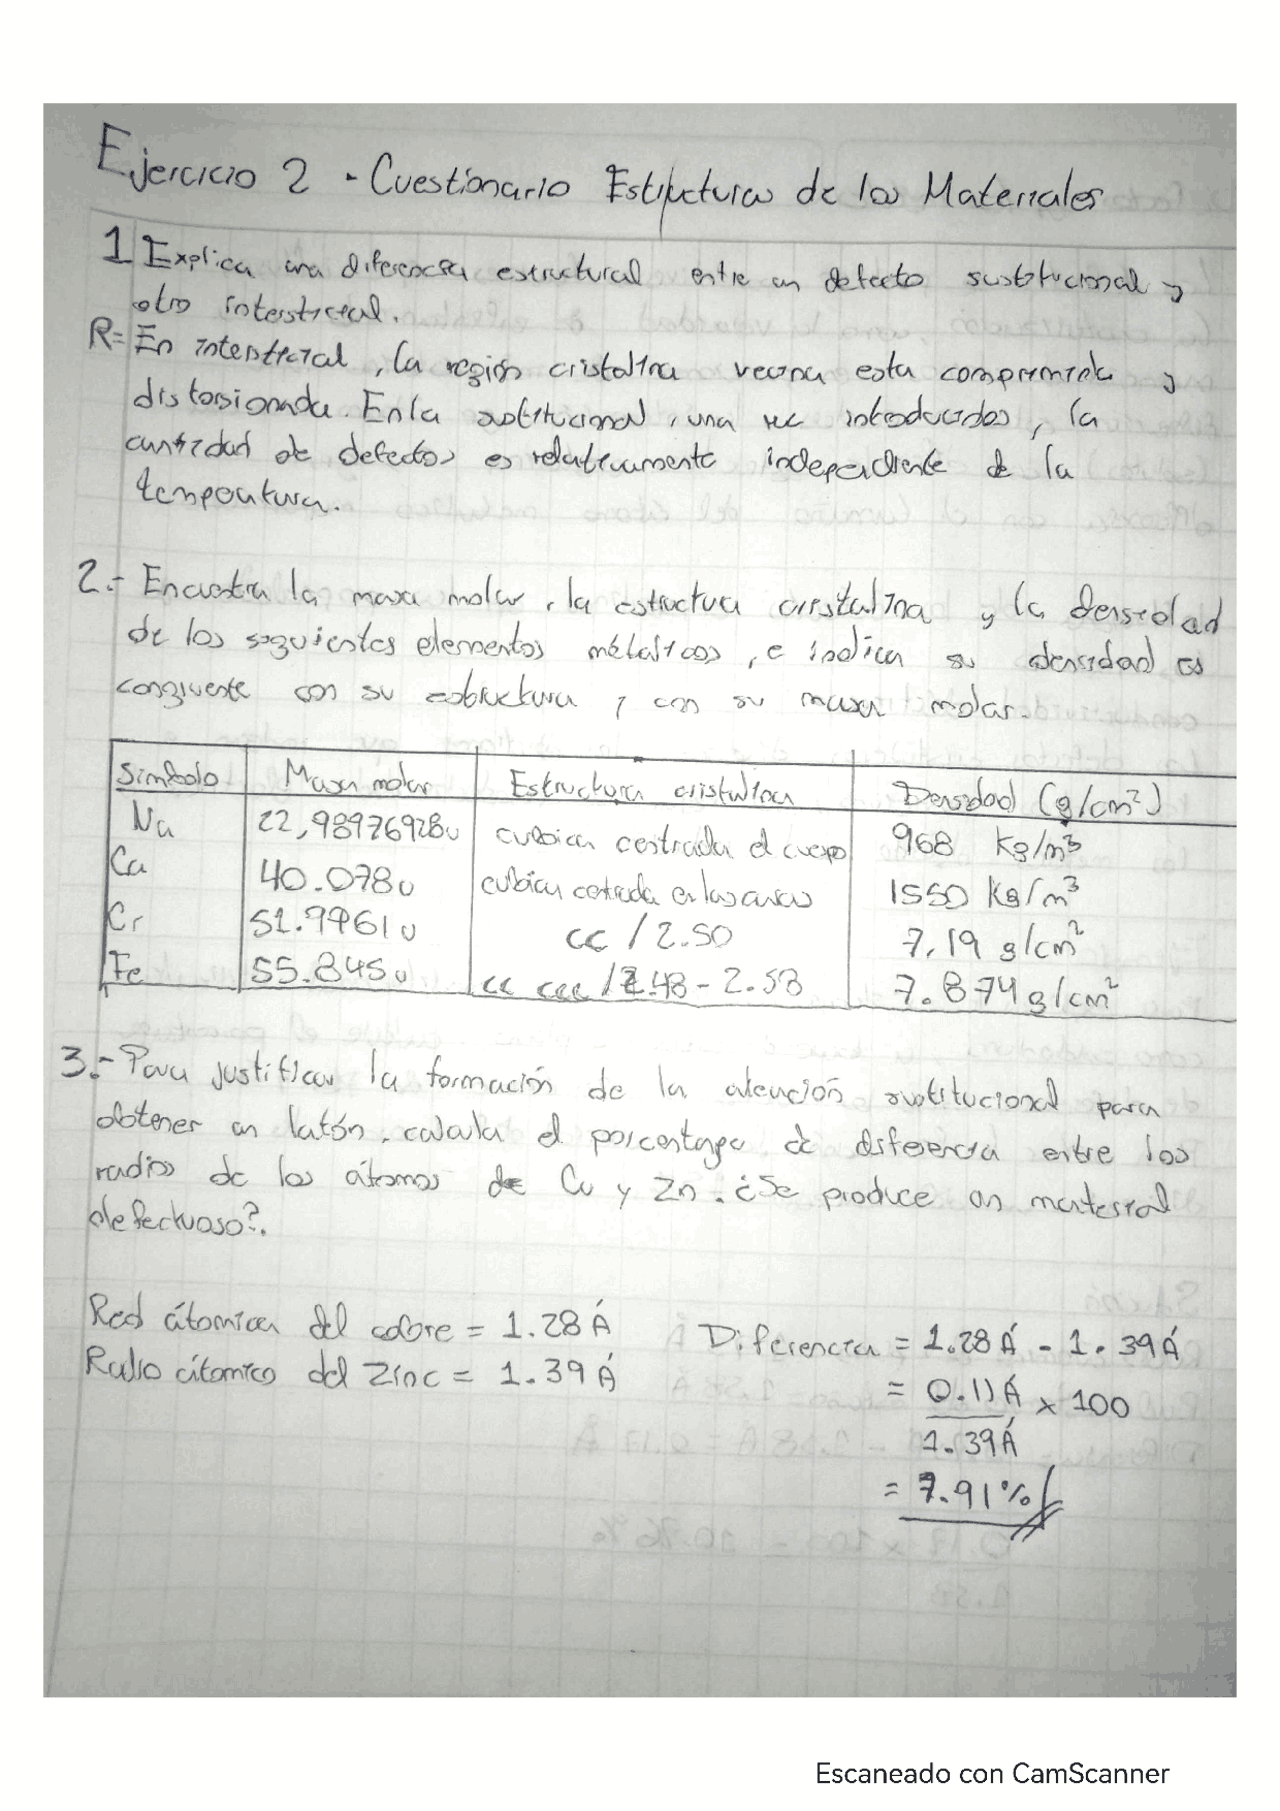 Ejercicio 2 - Cuestionario Estructuras de los Materiales
1 Explica una diferencia estructural entre un defecto sustitucional y
otro intersticial.
R= En intersticial, la región cristalina vecina esta comprimida y
distorsionada. En la sustitucional, una vez introducidos, la
cantidad de defectos es relativamente independiente de la
temperatura.
2.- Encuentra la masa molar, la estructura cristalina y la densidad
de los siguientes elementos métalicos, e indica su densidad es
congruente con su estructura y con su masa molar.
Simbolo Masa molar Estructura cristalina Densidad (g/cm²)
Na 22,98976928u cubica centrada el cuerpo 968 Kg/m³
Ca 40.078u cubica centrada en las caras 1550 Kg/m³
Cr 51.9961u cc / 2.50 7,19 g/cm²
Fe 55.845u cc ccc / 2.48 - 2.58 7.874 g/cm²
3.- Para justificar la formación de la aleución sustitucional para
obtener un latón, calcula el porcentage de diferencia entre los
radios de los átomos de Cu y Zn. ¿Se produce un material
defectuoso?.
Red átomica del cobre = 1.28 Á
Radio átomico del Zinc = 1.39 Á
Diferencia = 1.28 Á - 1.39 Á
= 0.11 Á x 100
1.39 Á
= 7.91%
Escaneado con CamScanner